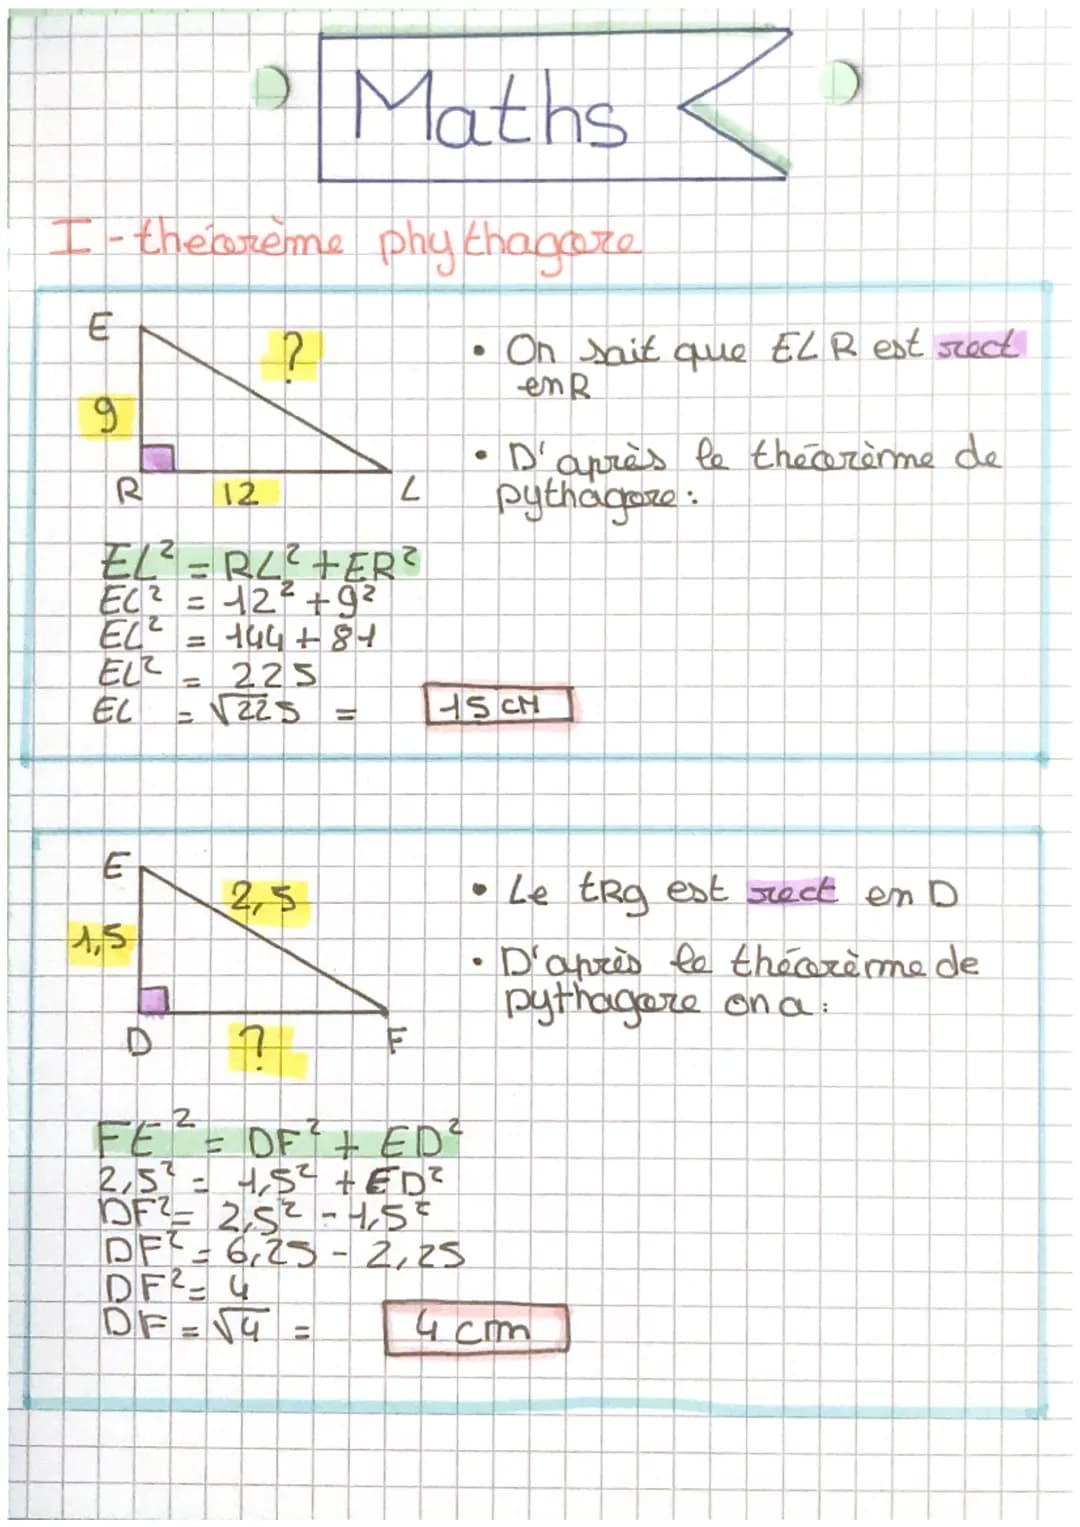 Maths
I - théorème phythagore
E
?
9
R
12
L
• On sait que ELR est rect
en R
• D'après le théorème de
pythagore :
EL² = RL² + ER²
EL² = 12² + 9²
EL² = 144 + 81
EL² = 225
EL = √225 = 15 cm
E
2,5
1,5
D
?
F
• Le tRg est rect en D
• D'après le théorème de
pythagore on a :
FE² = DF² + ED²
2,5² = 1,5² + ED²
DF² = 2,5² - 1,5²
DF² = 6,25 - 2,25
DF² = 4
DF = √4 = 4 cm